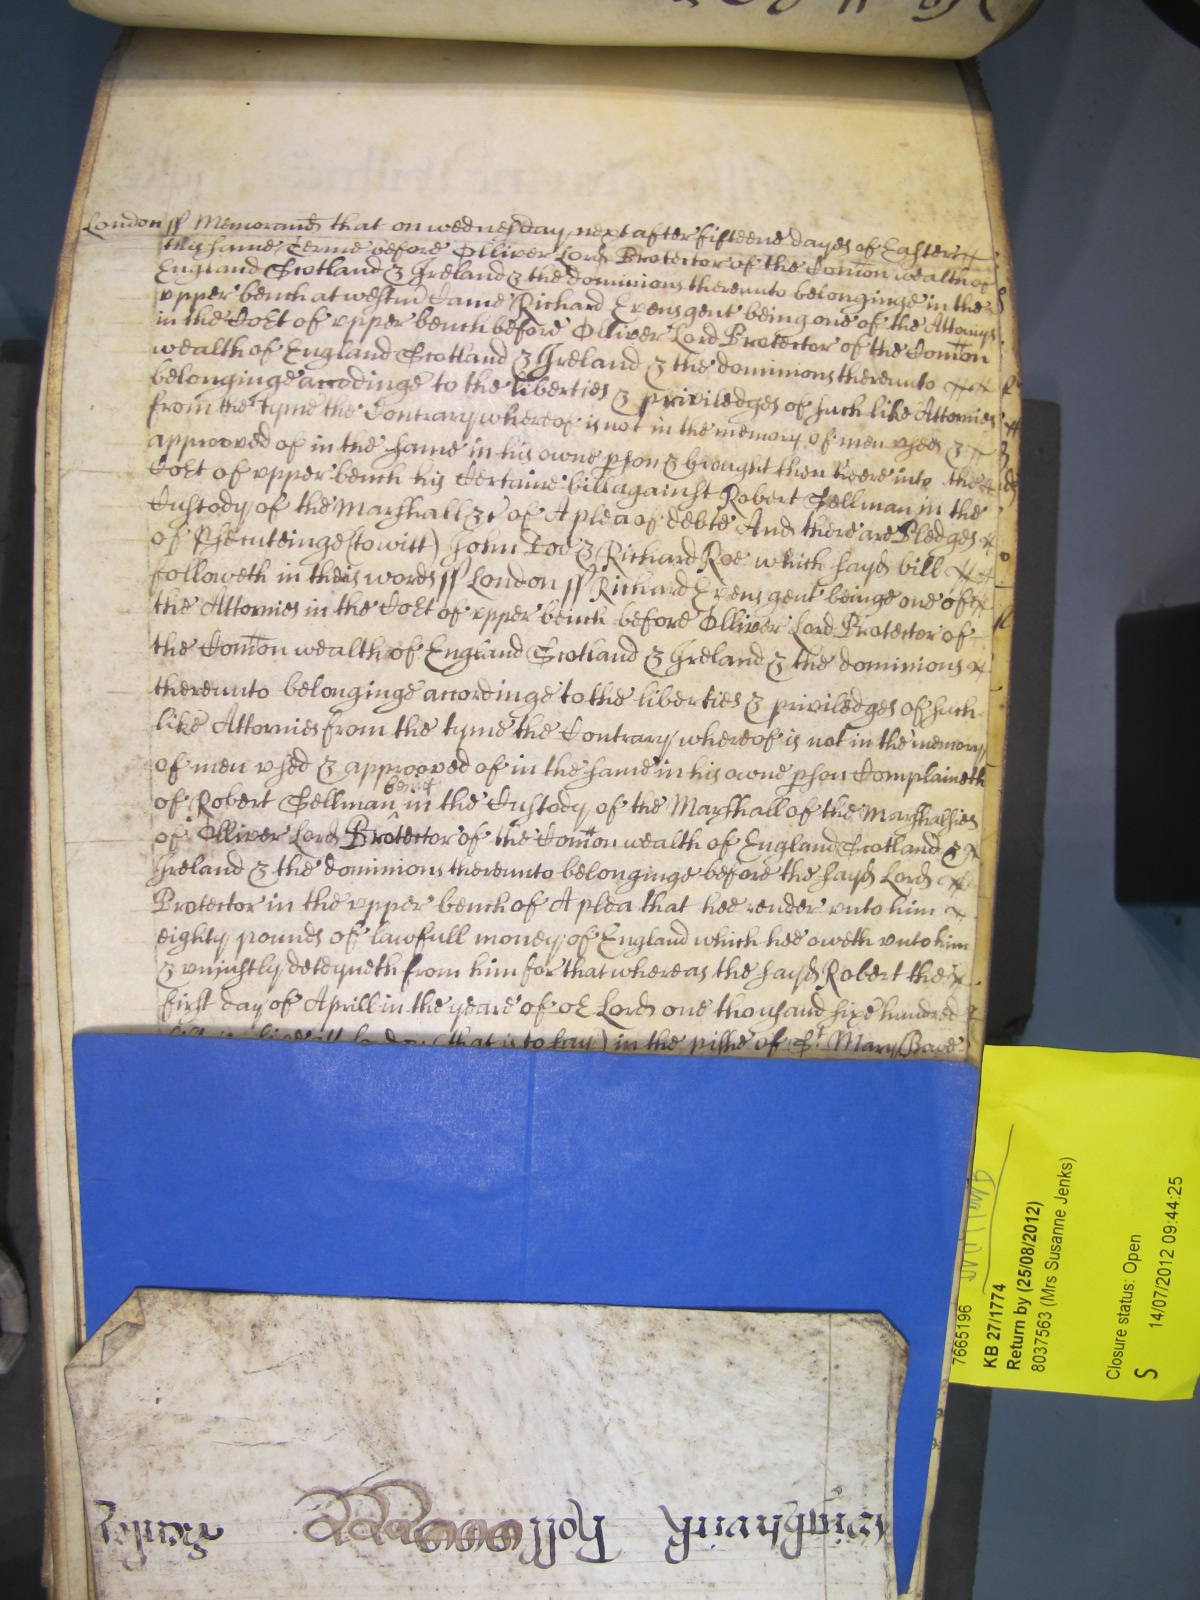 London ss Memorand that on wednesday next after fifteene dayes of Easter
this same Terme before Olliver Lord Protector of the Comon wealth of
England Scotland & Ireland & the dominions thereunto belonginge in the
upper bench at westm Came Richard Evens gent being one of the Attornys
in the Cort of upper bench before Olliver Lord Protector of the Comon
wealth of England Scotland & Ireland & the dominions thereunto
belonginge accordinge to the liberties & priviledges of such like Attornies
from the tyme the Contrary whereof is not in the memory of men used &
approoved of in the same in his owne pson & brought then heere into the
Cort of upper bench his Certaine bill against Robert Sellman in the
Custody of the Marshall &c of A plea of debte And there are Pledges
of Psecuteinge (to witt) John Doe & Richard Roe which sayd bill
followeth in theis words ss London ss Richard Evens gent beinge one of
the Attornies in the Cort of upper bench before Olliver Lord Protector of
the Comon wealth of England Scotland & Ireland & the dominions
thereunto belonginge accordinge to the liberties & priviledges of such
like Attornies from the tyme the Contrary whereof is not in the memory
of men used & approoved of in the same in his owne pson Complaineth
of Robert Sellman being in the Custody of the Marshall of the Marshalsies
of Olliver Lord Protector of the Comon wealth of England Scotland &
Ireland & the dominions thereunto belonginge before the sayd Lord
Protector in the upper bench of A plea that hee render unto him
eighty pounds of lawfull money of England which hee oweth unto him
& unjustly deteyneth from him for that whereas the sayd Robert the
first day of Aprill in the yeare of or Lord one thousand sixe hundred
(that is to say) in the pishe of St Mary Bowe
7665196
KB 27/1774
Return by (25/08/2012)
8037563 (Mrs Susanne Jenks)
Closure status: Open
S 14/07/2012 09:44:25